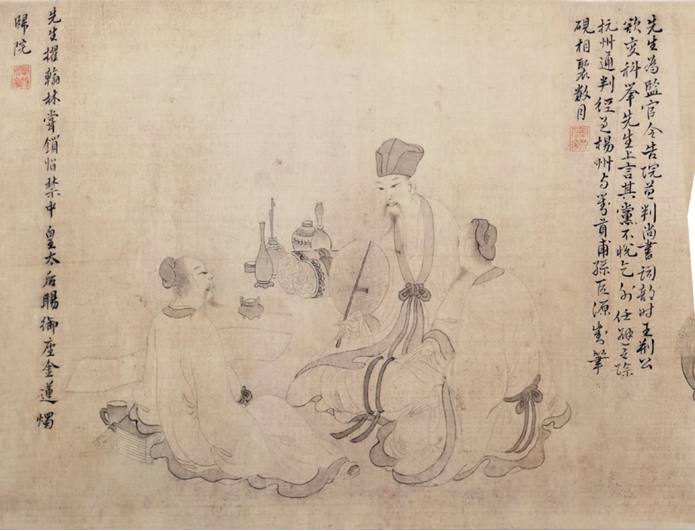 先生為監官令告院判尚書祠部時王荊公
欲变科举先生上言其黨不悅乞外任避之除
杭州通判經揚州与劉甫孫巨源劉
硯相聚數月
先生擢翰林嘗鎖宿禁中皇太后賜御座金蓮燭
歸院